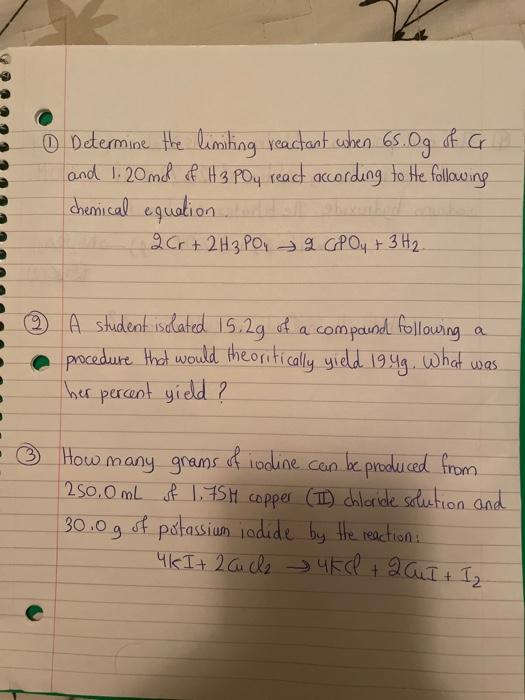 ① Determine the limiting reactant when 65.0g of Cr
and 1.20mol of H3PO4 react according to the following
chemical equation
2Cr + 2H3PO4 → 2 CrPO4 + 3H2
② A student isolated 15.2g of a compound following a
procedure that would theoritically yield 19.4g. What was
her percent yield ?
③ How many grams of iodine can be produced from
250.0 mL of 1.75M copper (II) chloride solution and
30.0 g of potassium iodide by the reaction:
4KI + 2CuCl2 → 4KCl + 2CuI + I2